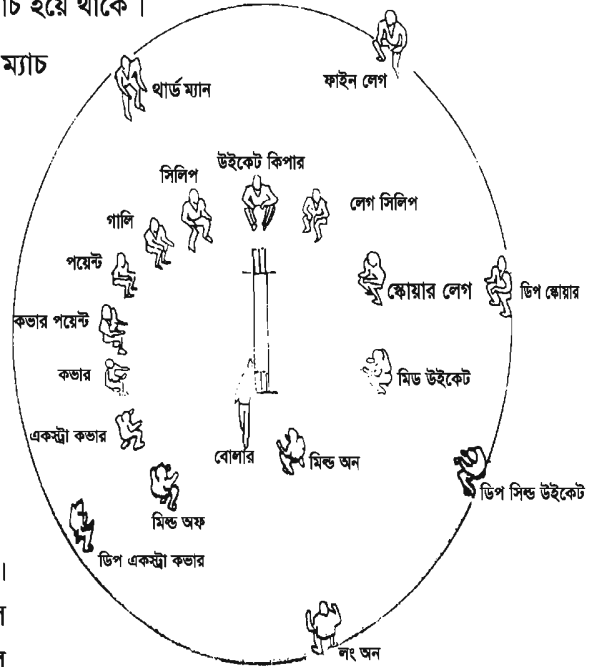 চ হয়ে থাকে ।
ম্যাচ
থার্ড ম্যান
ফাইন লেগ
উইকেট কিপার
সিলিপ
লেগ সিলিপ
গালি
পয়েন্ট
স্কোয়ার লেগ
ডিপ স্কোয়ার
কভার পয়েন্ট
কভার
মিড উইকেট
একস্ট্রা কভার
বোলার
মিন্ড অন
ডিপ সিন্ড উইকেট
মিন্ড অফ
ডিপ একস্ট্রা কভার
।
লং অন